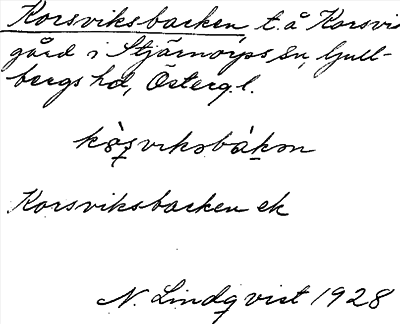 Korsviksbacken, t. å Korsvi
gård i Stjärnorps sn, Gull-
bergs hd, Österg.l.
Korsviksbacken ek
N. Lindqvist 1928